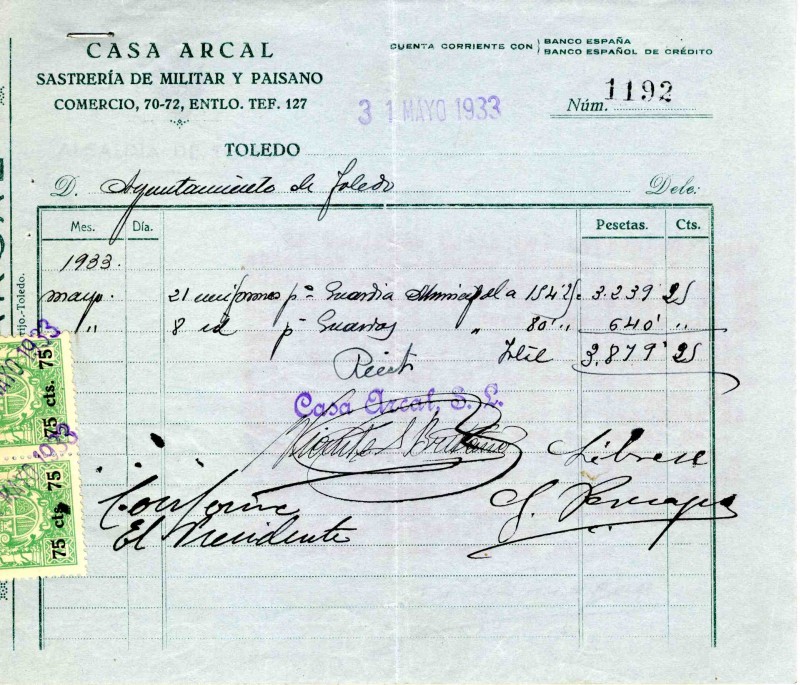 CASA ARCAL
SASTRERÍA DE MILITAR Y PAISANO
COMERCIO, 70-72, ENTLO. TEF. 127
CUENTA CORRIENTE CON
BANCO ESPAÑA
BANCO ESPAÑOL DE CRÉDITO
31 MAYO 1933
Núm. 1192
TOLEDO
D. Ayuntamiento de Toledo Debe:
Mes. Día. Pesetas. Cts.
1933.
mayo. 21 uniformes pª Guardia Municipal a 154'25 3.239 25
" 8 id pª Guardas " 80'" 640' "
Recibí Total 3.879' 25
Casa Arcal, S. L.
Líbrese
Conforme
El Presidente
rijo.-Toledo.
MAYO 1933
75 cts. 75
MAYO 1933
75 cts. 75